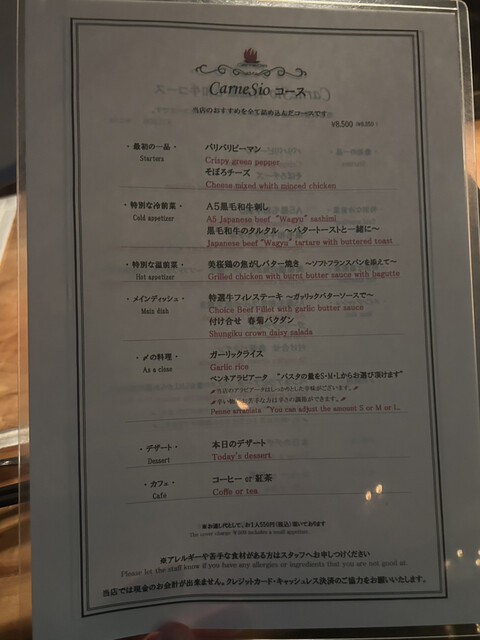 CarneSio コース
当店のおすすめを全て詰め込んだコースです
¥8,500
・最初の一品・
Starters
パリパリピーマン
Crispy green pepper
そぼろチーズ
Cheese mixed whith minced chicken
・特別な冷前菜・
Cold appetizer
A5黒毛和牛刺し
A5 Japanese beef "Wagyu" sashimi
黒毛和牛のタルタル ～バタートーストと一緒に～
Japanese beef "Wagyu" tartare with buttered toast
・特別な温前菜・
Hot appetizer
美桜鶏の焦がしバター焼き ～ソフトフランスパンを添えて～
Grilled chicken with burnt butter sauce with bagutte
・メインディッシュ・
Main dish
特選牛フィレステーキ ～ガーリックバターソースで～
Choice Beef Fillet with garlic butter sauce
付け合せ 春菊バクダン
Shungiku crown daisy salada
・〆の料理・
As a close
ガーリックライス
Garlic rice
ペンネアラビアータ "パスタの量をS・M・Lからお選び頂けます"
Penne arrabiata "You can adjust the amount S or M or L.
・デザート・
Dessert
本日のデザート
Today's dessert
・カフェ・
Café
コーヒー or 紅茶
Coffe or tea
※アレルギーや苦手な食材がある方はスタッフへお申しつけください
Please let the staff know if you have any allergies or ingredients that you are not good at.
当店では現金のお会計が出来ません。クレジットカード・キャッシュレス決済のご協力をお願いいたします。